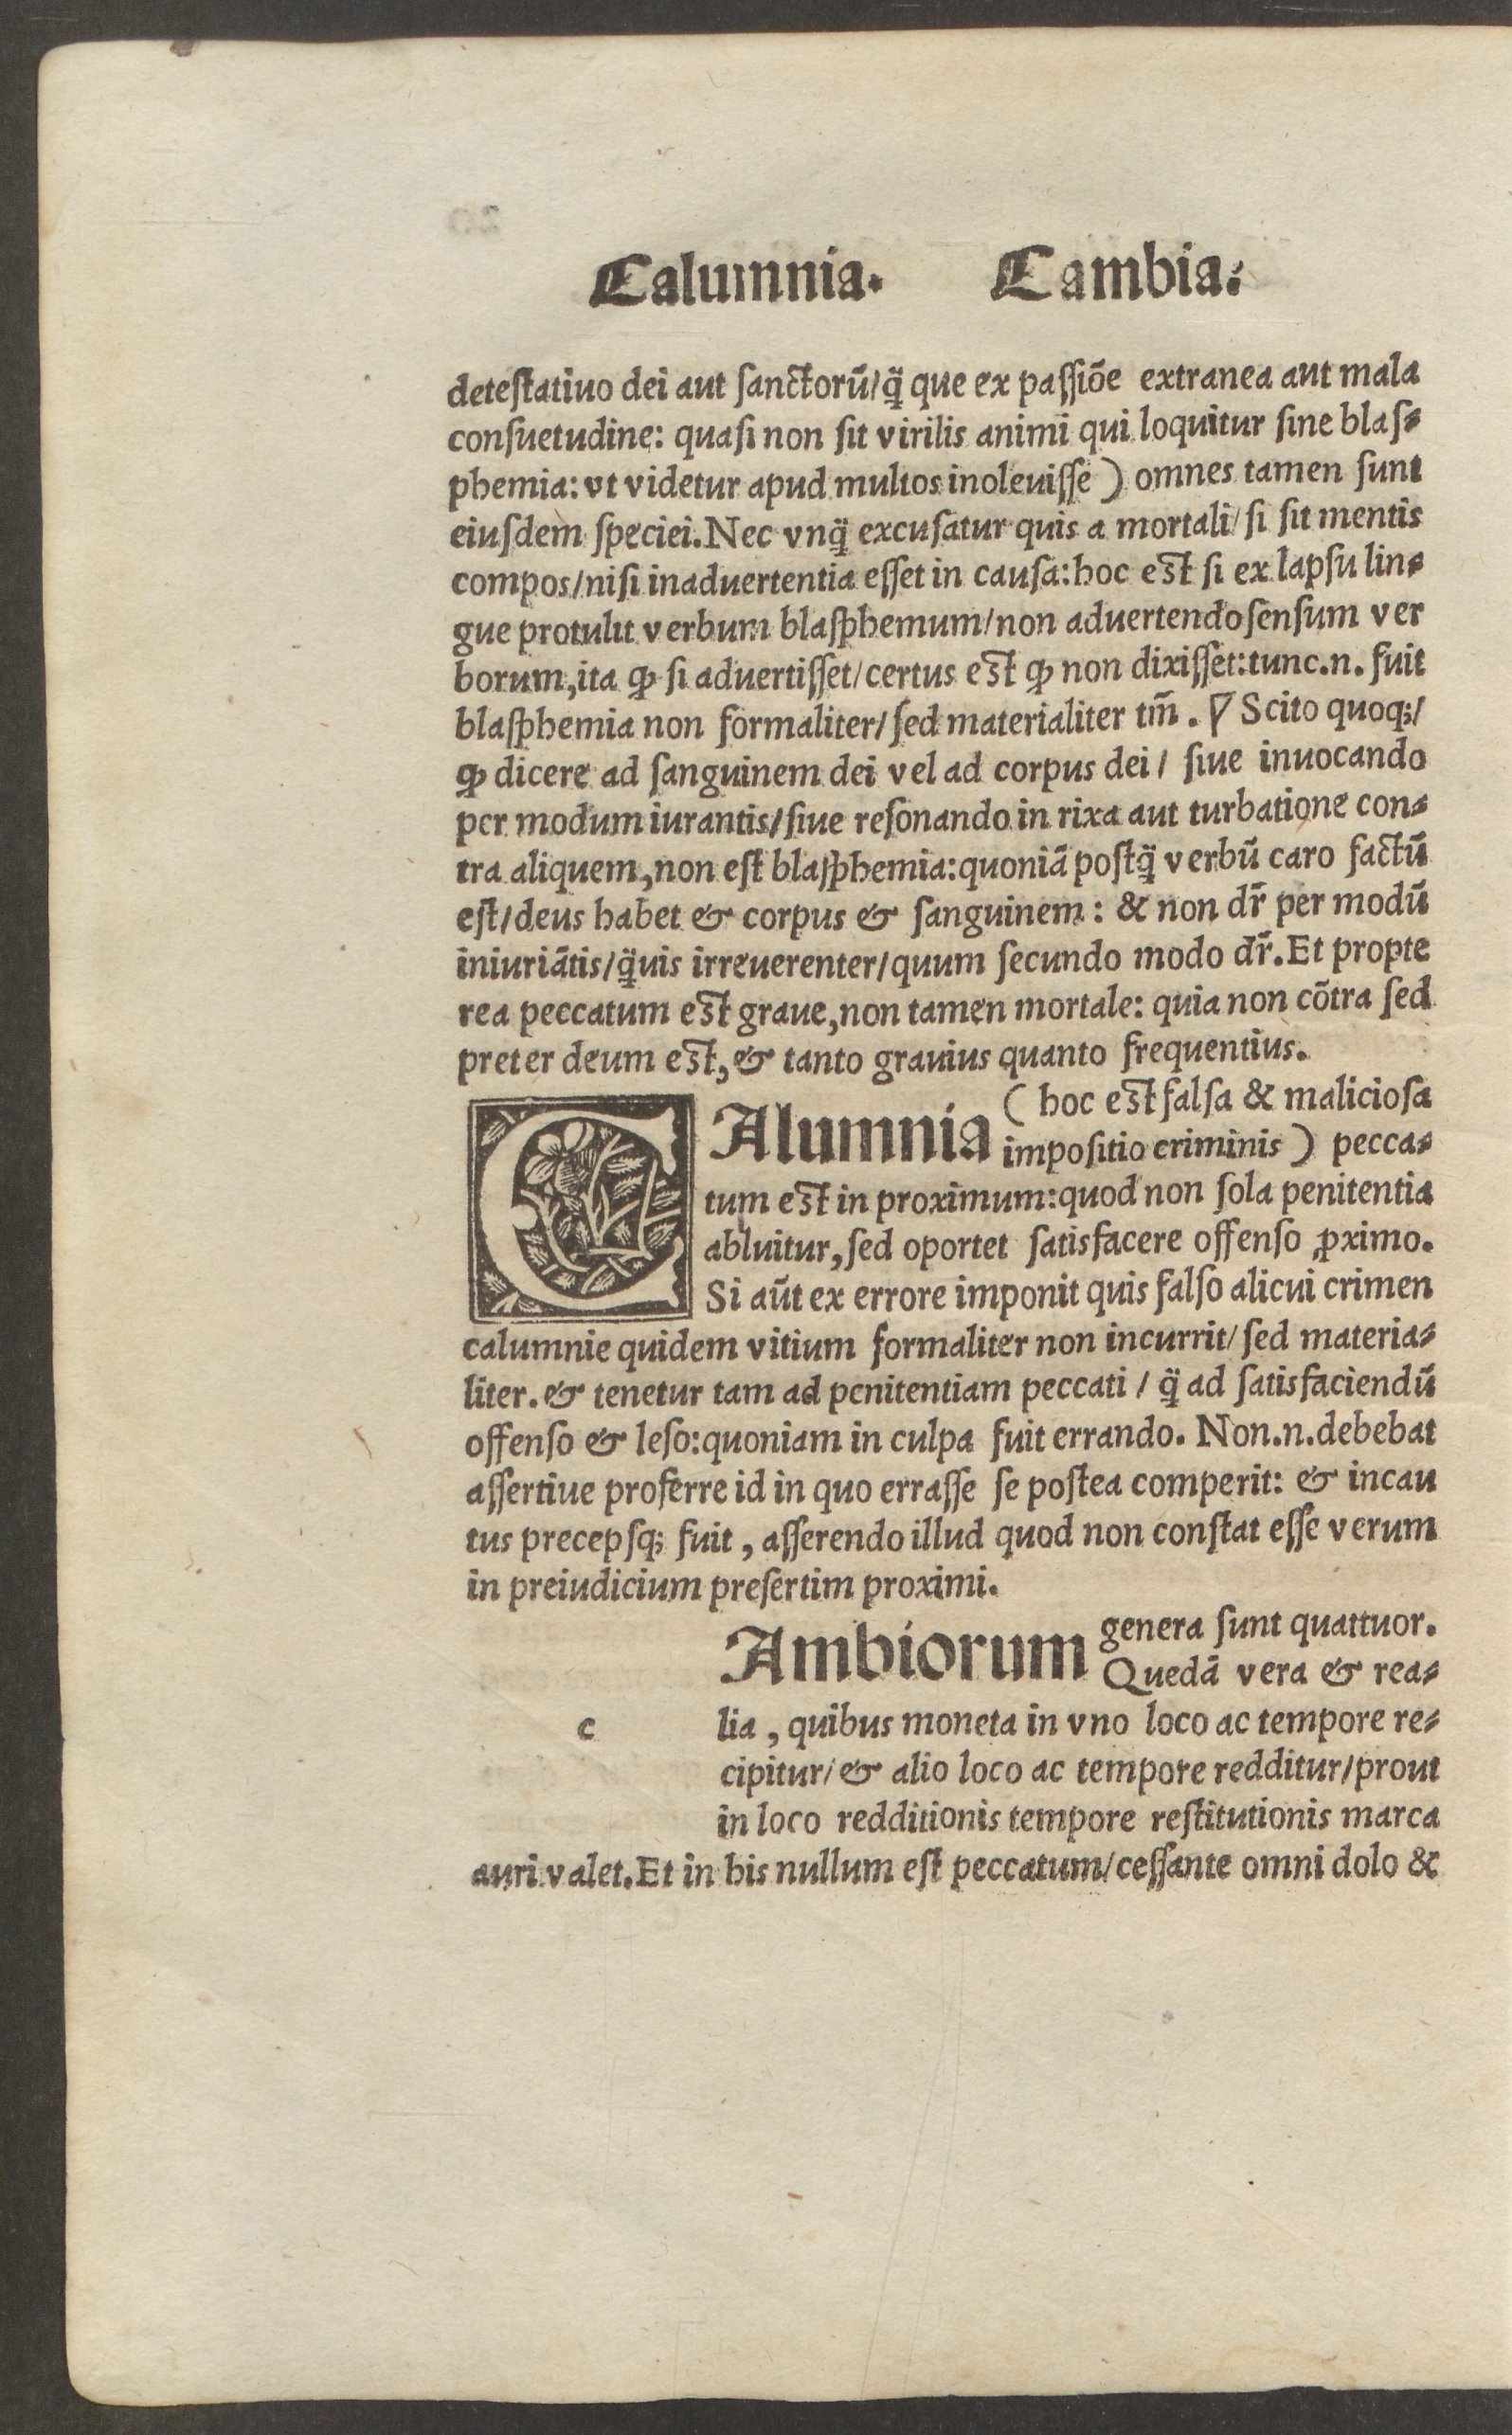 Calumnia. Cambia.
detestatiuo dei aut sanctorū/q̃ que ex passiōe extranea aut mala
consuetudine: quasi non sit virilis animi qui loquitur sine blas⸗
phemia: vt videtur apud multos inoleuisse ) omnes tamen sunt
eiusdem speciei. Nec vnq̃ excusatur quis a mortali/ si sit mentis
compos/nisi inaduertentia esset in causa: hoc est si ex lapsu lin⸗
gue protulit verbum blasphemum/non aduertendo sensum ver
borum, ita ꝙ si aduertisset/certus est ꝙ non dixisset: tunc.n. fuit
blasphemia non formaliter/ sed materialiter tm̄. ∇ Scito quoqꝫ/
ꝙ dicere ad sanguinem dei vel ad corpus dei / siue inuocando
per modum iurantis/siue resonando in rixa aut turbatione con⸗
tra aliquem, non est blasphemia: quoniā postq̃ verbū caro factū
est/deus habet & corpus & sanguinem: & non dr̄ per modū
iniuriātis/q̃uis irreuerenter/quum secundo modo dr̄. Et propte
rea peccatum est graue, non tamen mortale: quia non cōtra sed
preter deum est, & tanto grauius quanto frequentius.
CAlumnia ( hoc est falsa & maliciosa
impositio criminis ) pecca⸗
tum est in proximum: quod non sola penitentia
abluitur, sed oportet satisfacere offenso ꝓximo.
Si aūt ex errore imponit quis falso alicui crimen
calumnie quidem vitium formaliter non incurrit/ sed materia⸗
liter. & tenetur tam ad penitentiam peccati / q̃ ad satisfaciendū
offenso & leso: quoniam in culpa fuit errando. Non.n. debebat
assertiue proferre id in quo errasse se postea comperit: & incau
tus precepsqꝫ fuit, asserendo illud quod non constat esse verum
in preiudicium presertim proximi.
c Ambiorum genera sunt quattuor.
Quedā vera & rea⸗
lia, quibus moneta in vno loco ac tempore re⸗
cipitur/ & alio loco ac tempore redditur/prout
in loco redditionis tempore restitutionis marca
auri valet. Et in his nullum est peccatum/cessante omni dolo &